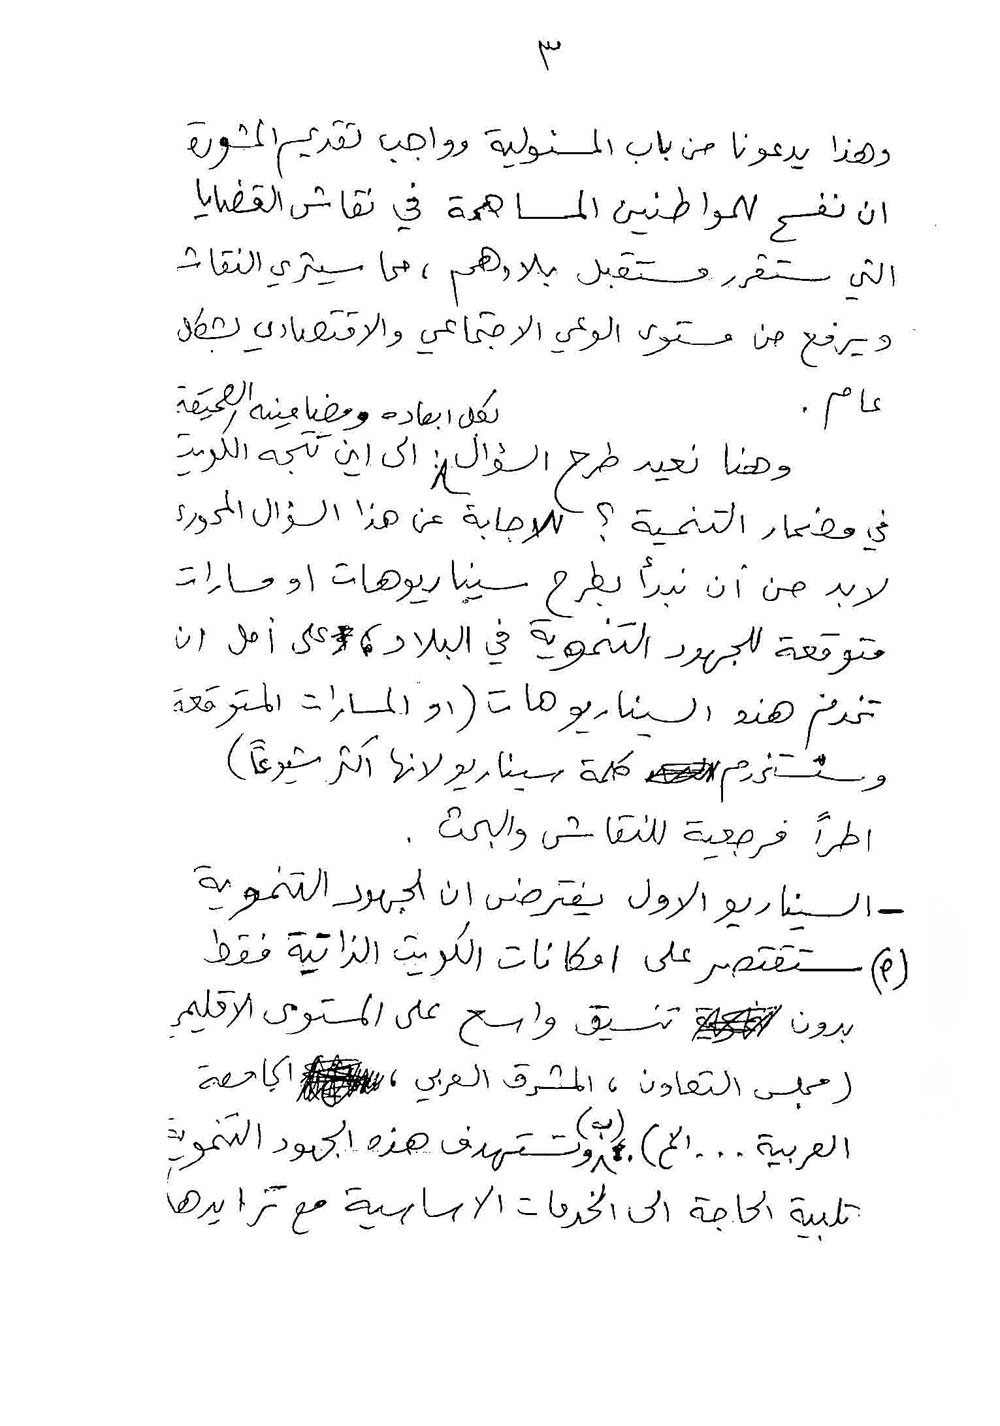 ٣
وهذا يدعونا من باب المسئولية وواجب تقديم المشورة
ان نفسح للمواطنين المساهمة في نقاش القضايا
التي ستقرر مستقبل بلادهم ، مما سيثري النقاش
ويرفع من مستوى الوعي الاجتماعي والاقتصادي بشكل
عام .
بكل ابعاده ومضامينه العميقة
وهنا نعيد طرح السؤال : الى اين تتجه الكويت
في مضمار التنمية ؟ للاجابة عن هذا السؤال المحوري
لابد من أن نبدأ بطرح سيناريوهات او مسارات
متوقعة للجهود التنموية في البلاد ، على أمل ان
تخدم هذه السيناريوهات (او المسارات المتوقعة
وسنستخدم كلمة سيناريو لانها أكثر شيوعاً)
اطراً مرجعية للنقاش والبحث .
- السيناريو الاول يفترض ان الجهود التنموية
(أ) ستقتصر على امكانات الكويت الذاتية فقط
بدون تنسيق واسع على المستوى الاقليمي
(مجلس التعاون ، المشرق العربي ، الجامعة
العربية ... الخ) . (ب) وتستهدف هذه الجهود التنموية
تلبية الحاجة الى الخدمات الاساسية مع تزايدها